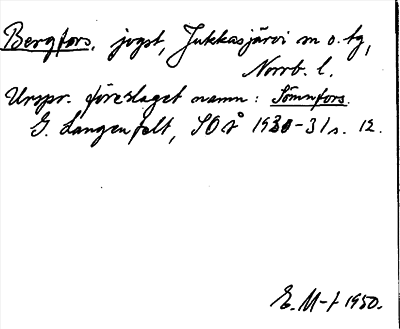 Bergfors, jvgst, Jukkasjärvi sn o. tg,
Norrb. l.
Urspr. föreslaget namn: Sömnfors.
G. Langenfelt, SOÅ 1930-31 s. 12.
E. M-t 1950.